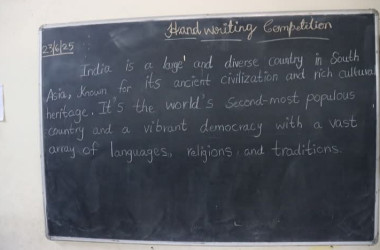 Hand writing Competition
23/6/25
India is a large and diverse country in South
Asia, known for its ancient civilization and rich cultural
heritage. It's the world's second-most populous
country and a vibrant democracy with a vast
array of languages, religions, and traditions.